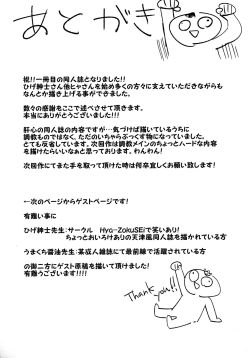 あとがき
祝!!一冊目の同人誌となりました!!
ひげ紳士さん他ヒャさんを始め多くの方々に支えていただきながらも
なんとか描き上げる事ができました。
数々の感謝をここで述べさせて頂きます。
本当にありがとうございました!!!
肝心の同人誌の内容ですが…気づけば描いているうちに
調教ものではなく、ただのいちゃらぶっくす物になっていました。
とても反省しています。次回作は調教メインのちょっとハードな内容
を描けたらいいなぁと思っております。わんわん!
次回作にてまた手を取って頂けた時は何卒宜しくお願い致します!
←次のページからゲストページです!
有難い事に
ひげ紳士先生:サークル Hya-ZokuSEiで笑いあり
ちょっとおいろけありの天津風同人誌を描かれている方
うまくち醤油先生:某成人雑誌にて最前線で活躍されている方
の御二方にゲスト原稿を描いて頂けました!
有難うございます!!!!
Thank you!!